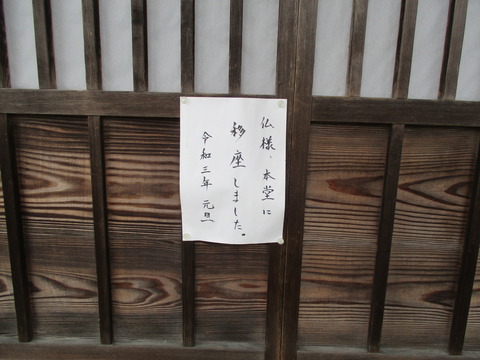 仏様、本堂に
移座しました。
令和三年 元旦